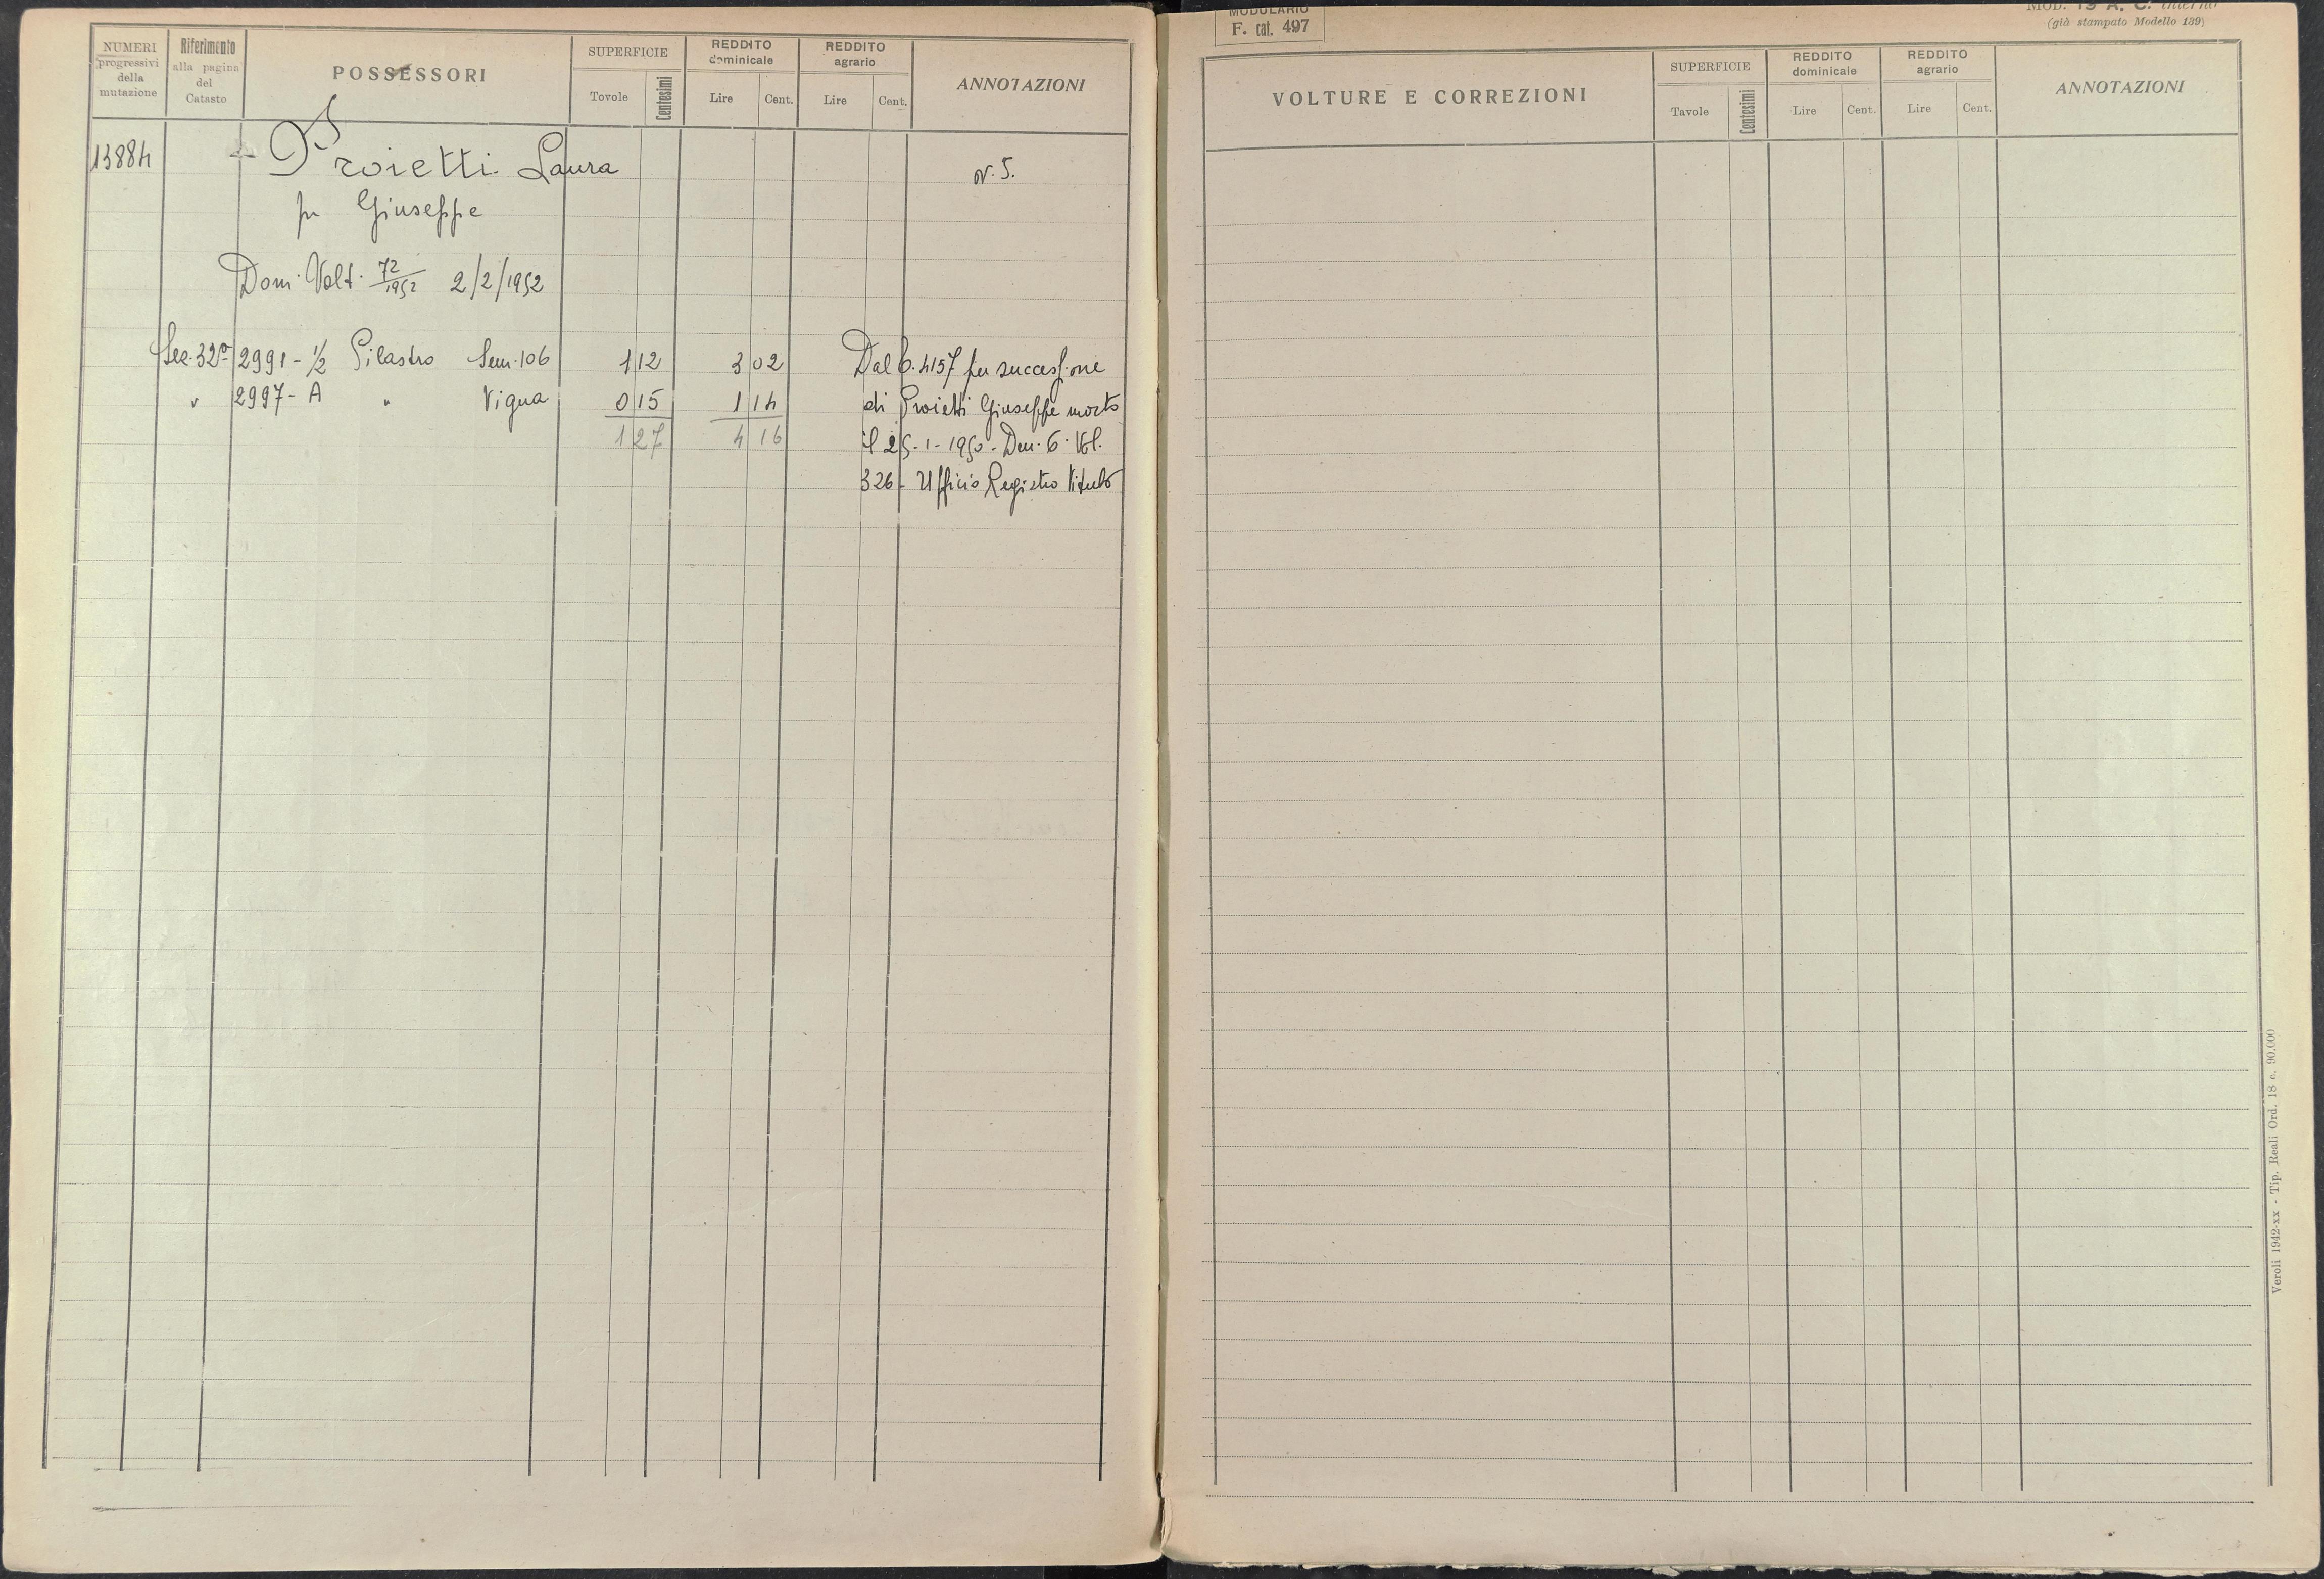 NUMERI progressivi della mutazione
Riferimento alla pagina del Catasto
POSSESSORI
SUPERFICIE
Tavole Centesimi
REDDITO dominicale
Lire Cent.
REDDITO agrario
Lire Cent.
ANNOTAZIONI
13884 Proietti Laura N. 5.
fu Giuseppe
Dom. Volt. 72/1952 2/2/1952
Sez. 32ª 2991 - 1/2 Pilastro Sem. 106 1 12 3 02 Dal 6.4157 per successione
" 2997 - A " Vigna 0 15 1 14 di Proietti Giuseppe morto
1 27 4 16 il 25-1-1950. Den. 6. Vol.
326 - Ufficio Registro Viterbo
MODULARIO
F. cat. 497
MOD. 13 A. C. interno
(già stampato Modello 139)
VOLTURE E CORREZIONI
SUPERFICIE
Tavole Centesimi
REDDITO dominicale
Lire Cent.
REDDITO agrario
Lire Cent.
ANNOTAZIONI
Veroli 1942-XX - Tip. Reali Ord. 18 c. 90.000